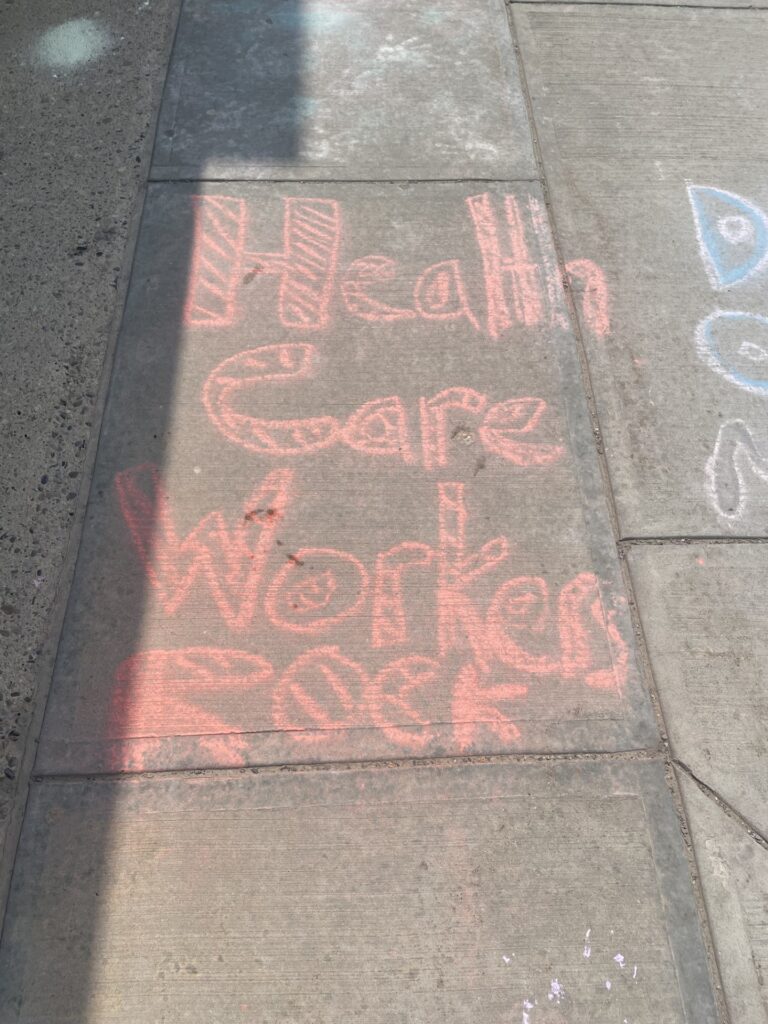 Health
Care
Workers
Rock